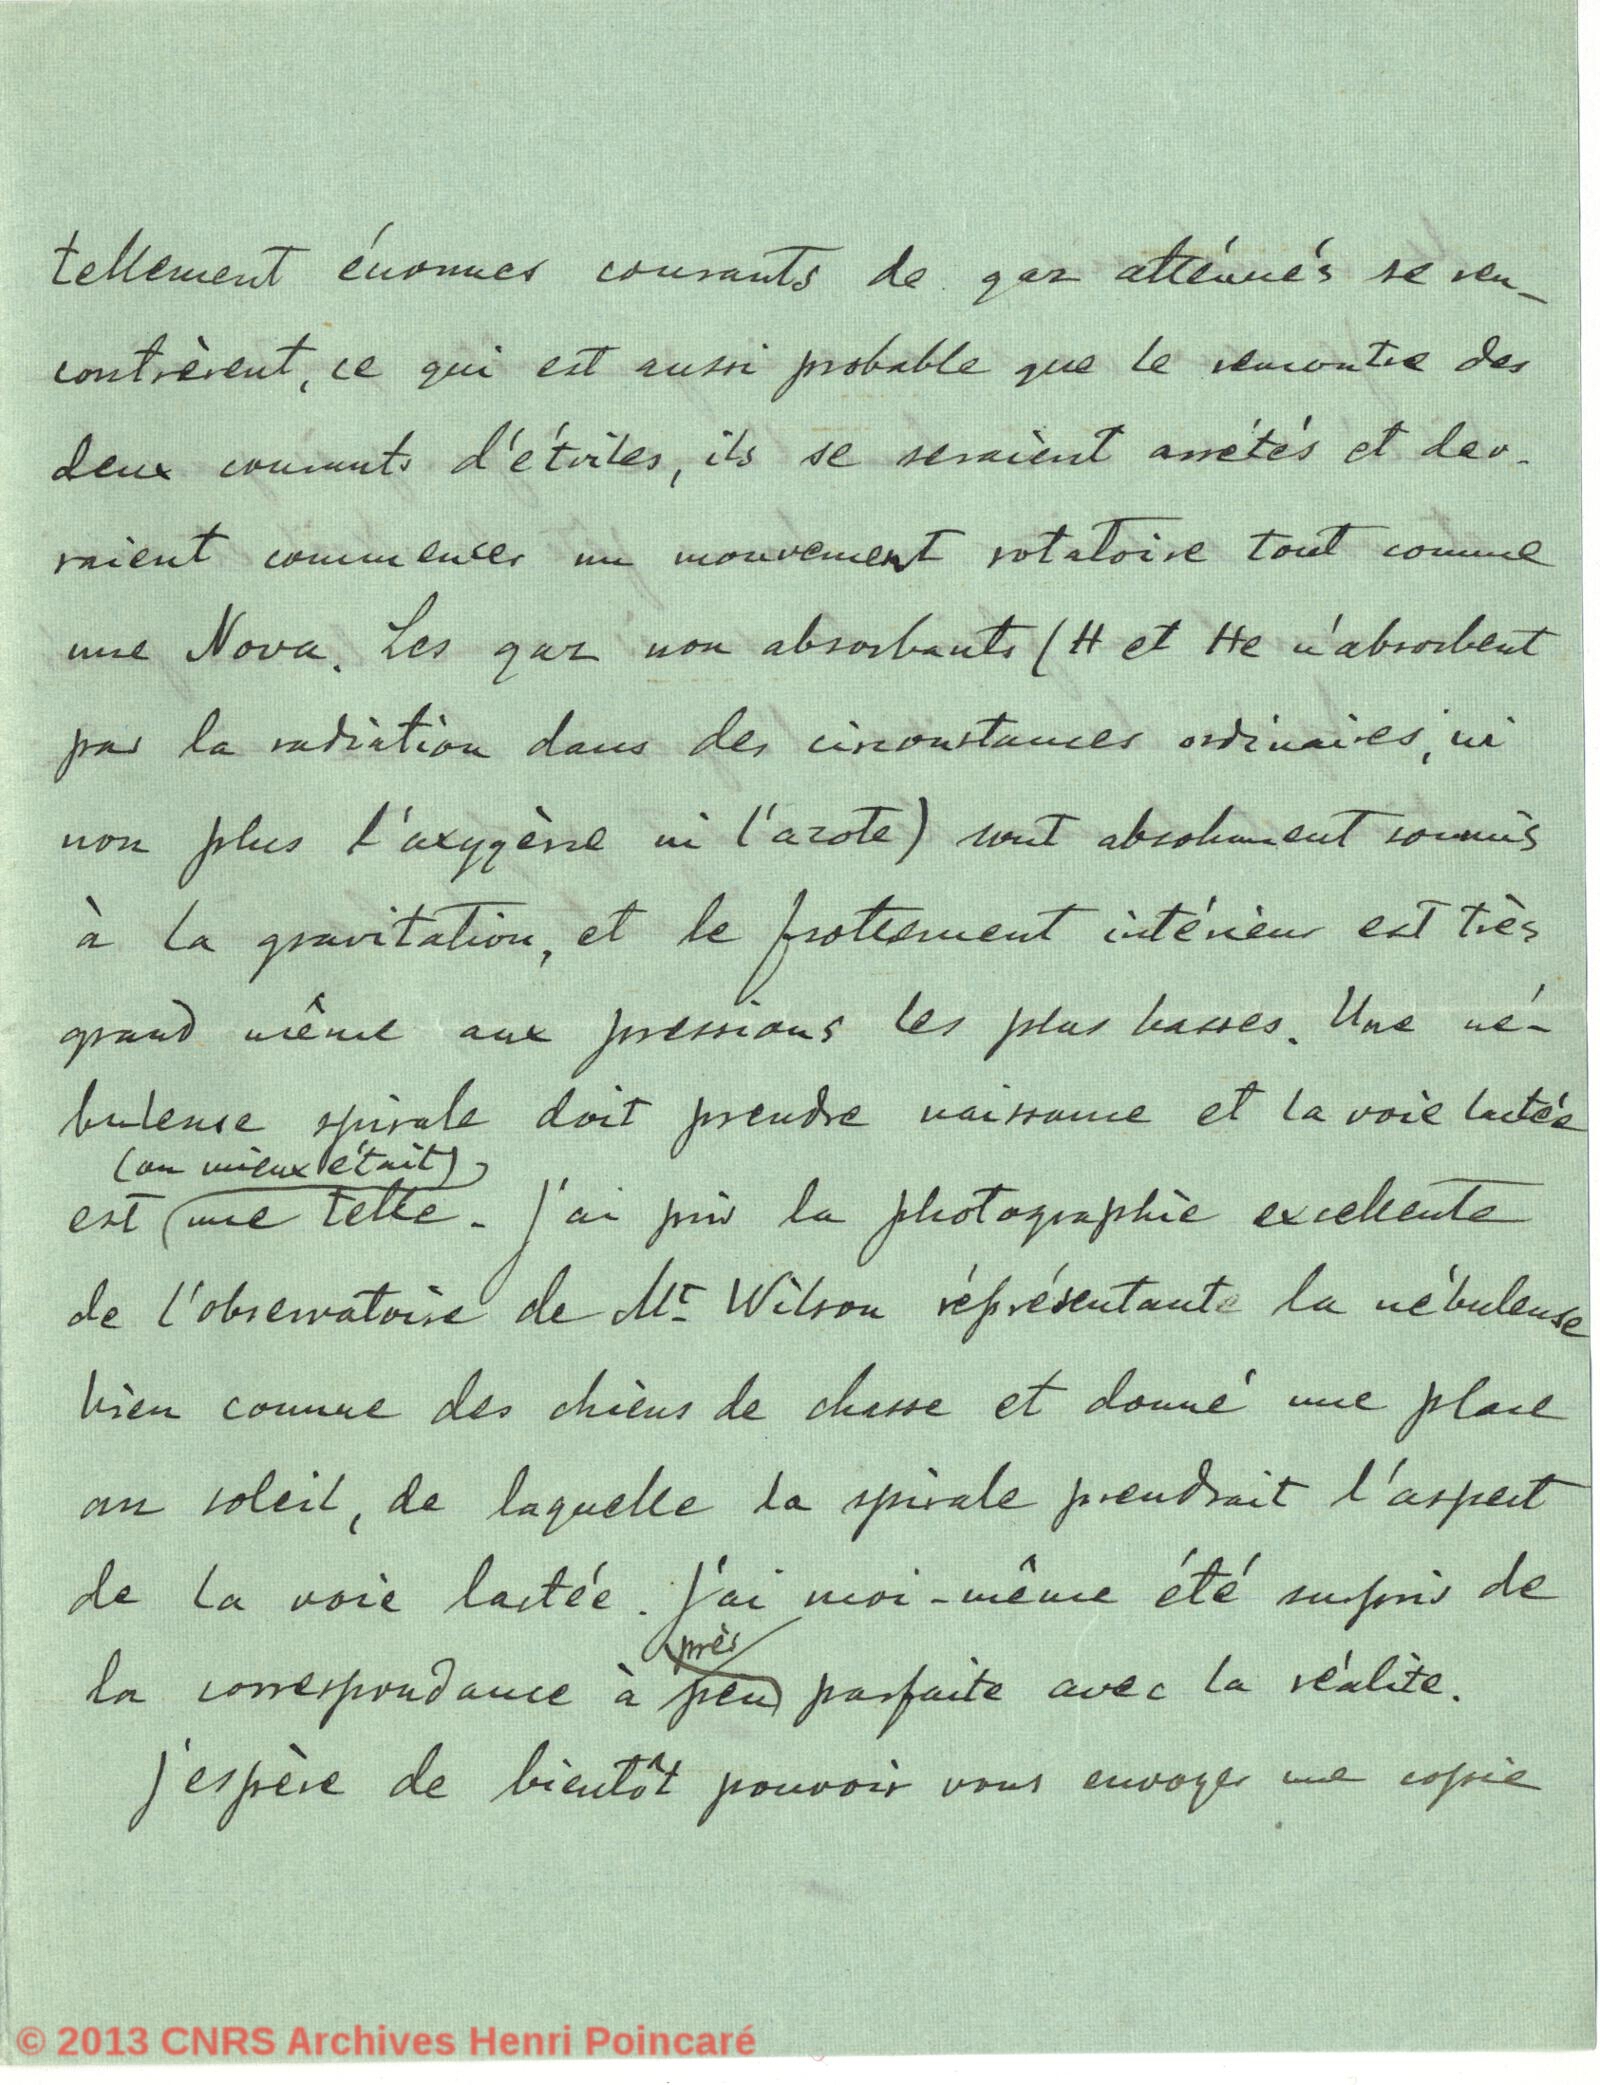 tellement énormes courants de gaz atténués se ren-
contrèrent, ce qui est aussi probable que le rencontre des
deux courants d'étoiles, ils se seraient arrétés et dev-
raient commencer un mouvement rotatoire tout comme
une Nova. Les gaz non absorbants (H et He n'absorbent
pas la radiation dans des circonstances ordinaires, ni
non plus l'oxygène ni l'azote) sont absolument soumis
à la gravitation, et le frottement intérieur est très
grand même aux pressions les plus basses. Une né-
buleuse spirale doit prendre naissance et la voie lactée
(ou mieux était)
est une telle. J'ai pris la photographie excellente
de l'observatoire de Mt Wilson réprésentante la nébuleuse
bien connue des chiens de chasse et donné une place
au soleil, de laquelle la spirale prendrait l'aspect
de la voie lactée. J'ai moi-même été surpris de
près
la correspondance à peu parfaite avec la réalite.
J'espère de bientôt pouvoir vous envoyer une copie
© 2013 CNRS Archives Henri Poincaré